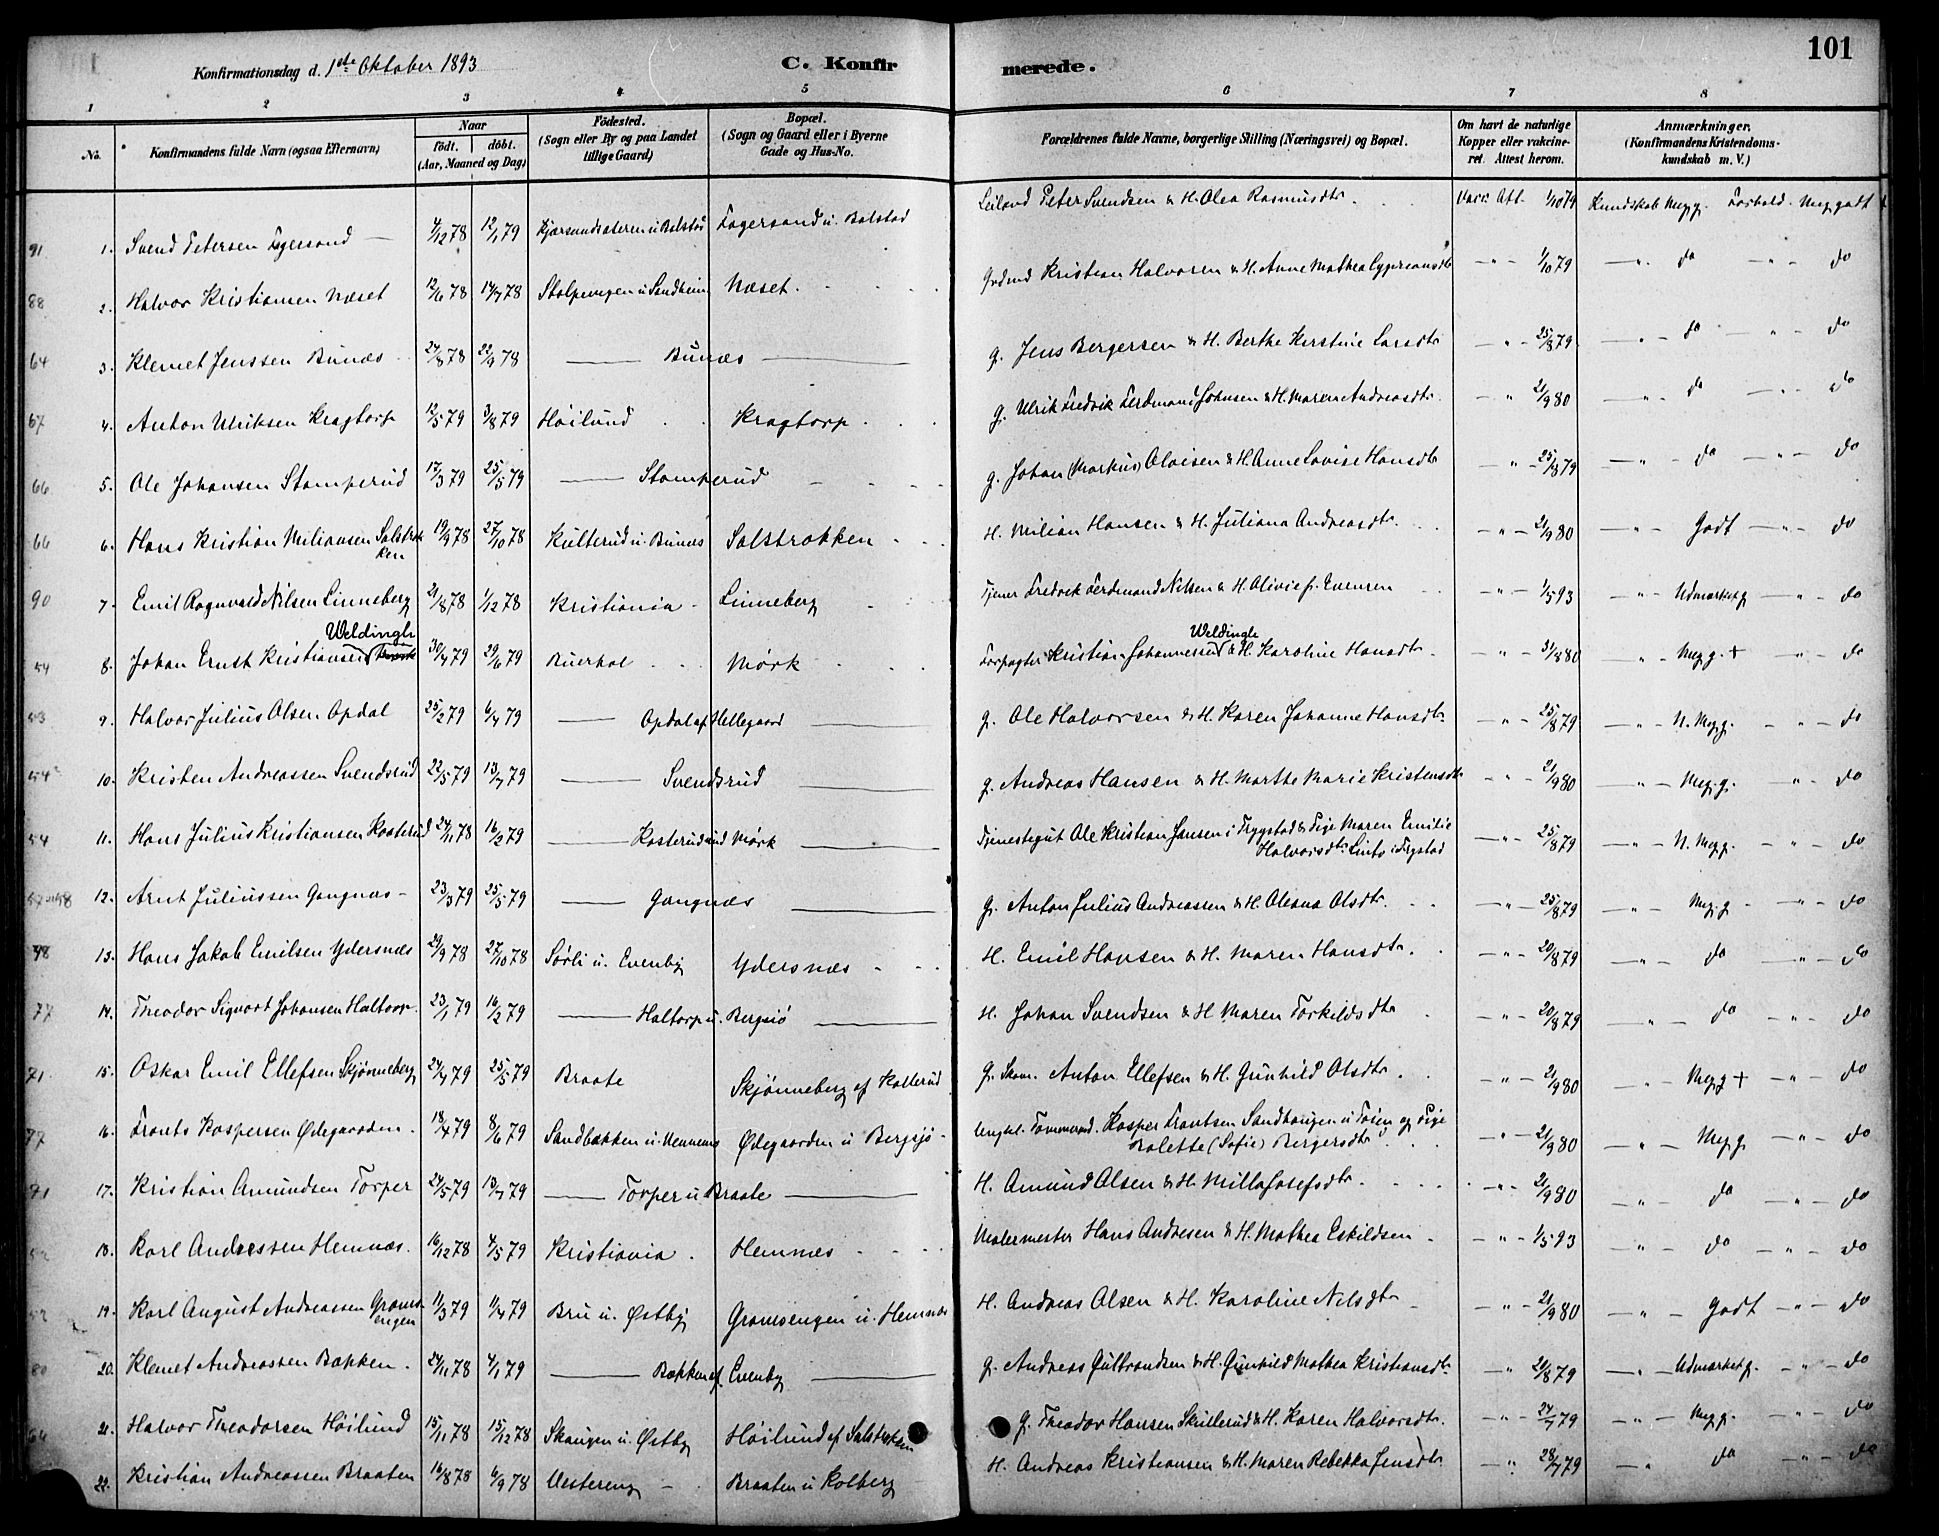 101
Konfirmationsdag d. 1ste Oktober 1893 C. Konfir merede.
1 2 3 4 5 6 7 8
No. Konfirmandens fulde Navn (ogsaa Efternavn) Naar födt. döbt. (Aar, Maaned og Dag) Födested. (Sogn eller By og paa Landet tillige Gaard) Bopæl. (Sogn og Gaard eller i Byerne Gade og Hus-No. Forældrenes fulde Navne, borgerlige Stilling (Næringsvei) og Bopæl. Om havt de naturlige Kopper eller vakcineret. Attest herom. Anmærkninger. (Konfirmandens Kristendomskundskab m. V.)
91 1. Svend Petersen Fagersand 4/12 78 12/1 79 Kjærsundsæteren u. Bolstad Fagersand u. Bolstad Leiland Peter Svendsen & H. Olea Rasmusdtr. Vacc. Att. 1/10 79 Kundskab Meg g. Forhold Meg godt
88 2. Halvor Kristiansen Næset 12/6 78 14/7 78 Stolpevegen u Sandheim Næset Kristian Halvorsen & H. Anne Mathea 1/10 79 do do
64 3. Klemet Jenssen Bunæs 24/8 78 22/9 78 Bunæs g. Jens Bergersen & H. Berthe Kirstine Larsdtr 25/8 79 do do
67 4. Anton Ulriksen Kragtorp 12/5 79 3/8 79 Höilund Kragtorp g. Ulrik Fredrik Ferdinand Johnsen & H. Maren Andreasdtr. 21/9 80 do do
66 5. Ole Johansen Stomperud 17/3 79 25/5 79 Stomperud g. Johan (Markus) Oloisen & H. Anne Lovise Hansdtr 25/8 79 do do
66 6. Hans Kristian Miliansen Salstrokken 19/9 78 27/10 78 Kulterud u. Bunæs Salstrokken H. Milian Hansen & H. Juliana Andreasdtr. 21/9 80 Godt do
90 7. Emil Ragnvald Nilsen Linneberg 21/8 78 1/12 78 Kristiania Linneberg Tjener Fredrik Ferdinand Nilsen & H. Olivie f. Evensen 1/5 93 Udmærket g do
54 8. Johan Ernst Kristiansen Weldingh 30/4 79 29/6 79 Buerhol Mørk Forpagter Kristian Johannessen Weldingh & H. Karoline Hansdtr. 31/8 80 Meg g. + do
53 9. Halvor Julius Olsen Opdal 25/2 79 6/4 79 Opdal af Hellegaard g. Ole Halvorsen & H. Karen Johanne Hansdtr. 25/8 79 N. Meg g. do
54 10. Kristen Andreassen Svendsrud 22/5 79 13/7 79 Svendsrud g. Andreas Hansen & H. Marthe Marie Kristensdtr. 21/9 80 Meg g. do
54 11. Hans Julius Kristiansen Kosterud 24/11 78 16/2 79 Kosterud und Mørk Tjenestegut Ole Kristian Jansen i Trygstad & Pige Maren Emilie Halvorsdtr. i Trygstad 25/8 79 N. Meg g. do
58 12. Arnt Juliussen Gangnæs 23/3 79 25/5 79 Gangnæs g. Anton Julius Andreassen & H. Oleana Olsdtr. 25/8 79 Meg g do
48 13. Hans Jakob Emilsen Ydersnæs 29/9 78 27/10 78 Sørli u. Evenby Ydersnæs H. Emil Hansen & H. Maren Hansdtr. 20/8 79 do do
77 14. Theodor Sigvart Johansen Haltorp 23/1 79 16/2 79 Haltorp u. Bergsjö H. Johan Svendsen & H. Maren Torkildsdtr 20/8 79 do do
71 15. Oskar Emil Ellefsen Skjönneberg 24/4 79 25/5 79 Braate Skjönneberg af Kollerud g. Skom. Anton Ellefsen & H. Gunhild Olsdtr. 21/9 80 Meg g + do
77 16. Frants Kaspersen Ødegaarden 18/4 79 8/6 79 Sandbakken u. Hemnæs Ødegaarden u Bergsjö Ungkl. Tømmermd. Kasper Frantsen Sandhaugen u Toien og Pige Ralette (Sofie) Bergersdtr. 21/9 80 Meg g do
91 17. Kristian Amundsen Torper 24/5 79 13/7 79 Torper u Braate H. Amund Olsen & H. Milla Josefsdtr. 21/9 80 do do
52 18. Karl Andresen Hemnæs 16/12 78 4/5 79 Kristiania Hemnæs Malermester Hans Andresen & H. Mathea Eskildsen 1/5 93 do do
52 19. Karl August Andreassen Gramsengen 11/3 79 11/4 79 Bru u. Østby Gramsengen u. Hemnæs H. Andreas Olsen & H. Karoline Nilsdtr 21/9 80 Godt do
80 20. Klemet Andreassen Bakken 24/11 78 4/1 79 Bakken af Evenby g. Andreas Gulbrandsen & H. Gunhild Mathea Kristiansdtr. 21/8 79 Udmærket g. do
64 21. Halvor Theodorsen Höilund 15/11 78 15/12 78 Skaugen u. Østby Höilund af Salstrokken g. Theodor Hansen Skullerud & H. Karen Halvorsdtr. 24/7 79 Meg g. do
22. Kristian Andreassen Braaten 16/8 78 6/9 78 Vestereng Braaten u Kolberg H. Andreas Kristiansen & H. Maren Rebekka Jensdtr 28/7 79 do do